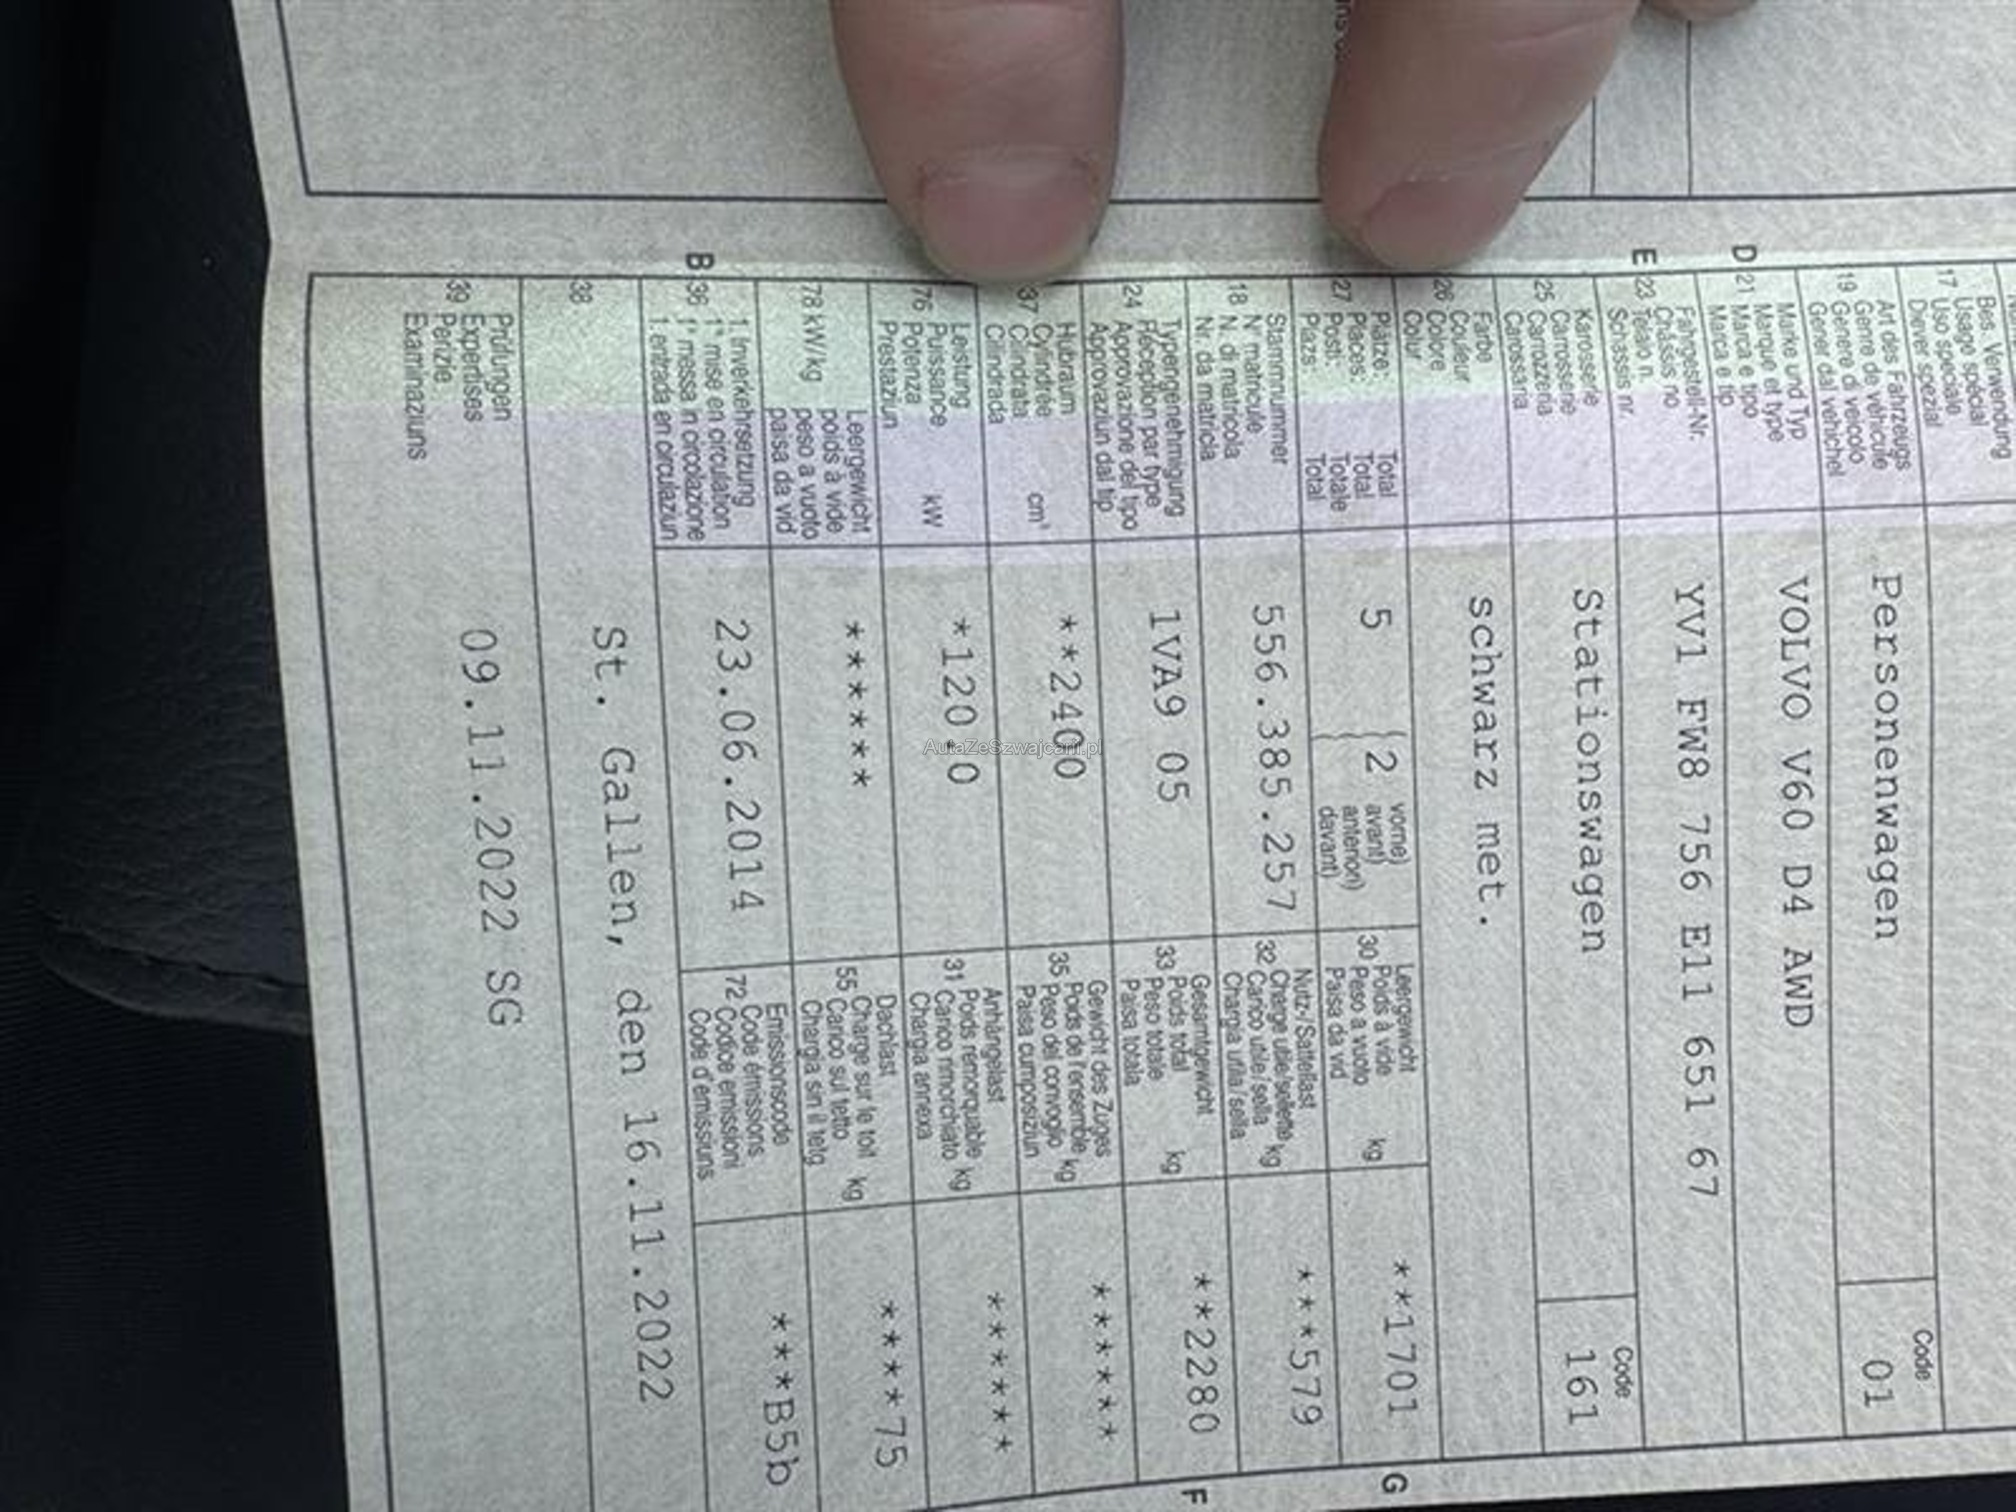 Bes. Verwendung
Usage spécial
17 Uso speciale
Diever spezial
Art des Fahrzeugs
Genre de véhicule
19 Genere di veicolo
Gener dal vehichel
Personenwagen
Code
01
Marke und Typ
Marque et type
D 21 Marca e tipo
Marca e tip
VOLVO V60 D4 AWD
Fahrgestell-Nr.
Châssis no
E 23 Telaio n.
Schassis nr.
YV1 FW8 756 E11 651 67
Karosserie
Carrosserie
25 Carrozzeria
Carossaria
Stationswagen
Code
161
Farbe
Couleur
26 Colore
Colur
schwarz met.
Plätze: Total
Places: Total
27 Posti: Totale
Plazs: Total
5
2
vorne)
avant)
anteriori)
davant)
Leergewicht
Poids à vide
30 Peso a vuoto
Paisa da vid
kg
**1701
G
Stammnummer
N° matricule
18 N. di matricola
Nr. da matricla
556.385.257
Nutz-/Sattellast
Charge utile/sellette
32 Carico utile/sella
Chargia utila/sella
kg
***579
Typengenehmigung
Réception par type
24 Approvazione del tipo
Approvaziun dal tip
1VA9 05
Gesamtgewicht
Poids total
33 Peso totale
Paisa totala
kg
**2280
F
Hubraum
Cylindrée
37 Cilindrata
Cilindrada
cm³
**2400
Gewicht des Zuges
Poids de l'ensemble
35 Peso del convoglio
Paisa cumposiziun
kg
*******
Leistung
Puissance
76 Potenza
Prestaziun
kW
*120*0
Anhängelast
Poids remorquable
31 Carico rimorchiato
Chargia annexa
kg
*******
78 kW/kg
Leergewicht
poids à vide
peso a vuoto
paisa da vid
*******
Dachlast
Charge sur le toit
55 Carico sul tetto
Chargia sin il tetg
kg
*****75
1. Inverkehrsetzung
1re mise en circulation
B 36 1a messa in circolazione
1. entrada en circulaziun
23.06.2014
Emissionscode
Code émissions
72 Codice emissioni
Code d'emissiuns
***B5b
38
St. Gallen, den 16.11.2022
Prüfungen
Expertises
39 Perizie
Examinaziuns
09.11.2022 SG
AutaZeSzwajcarii.pl